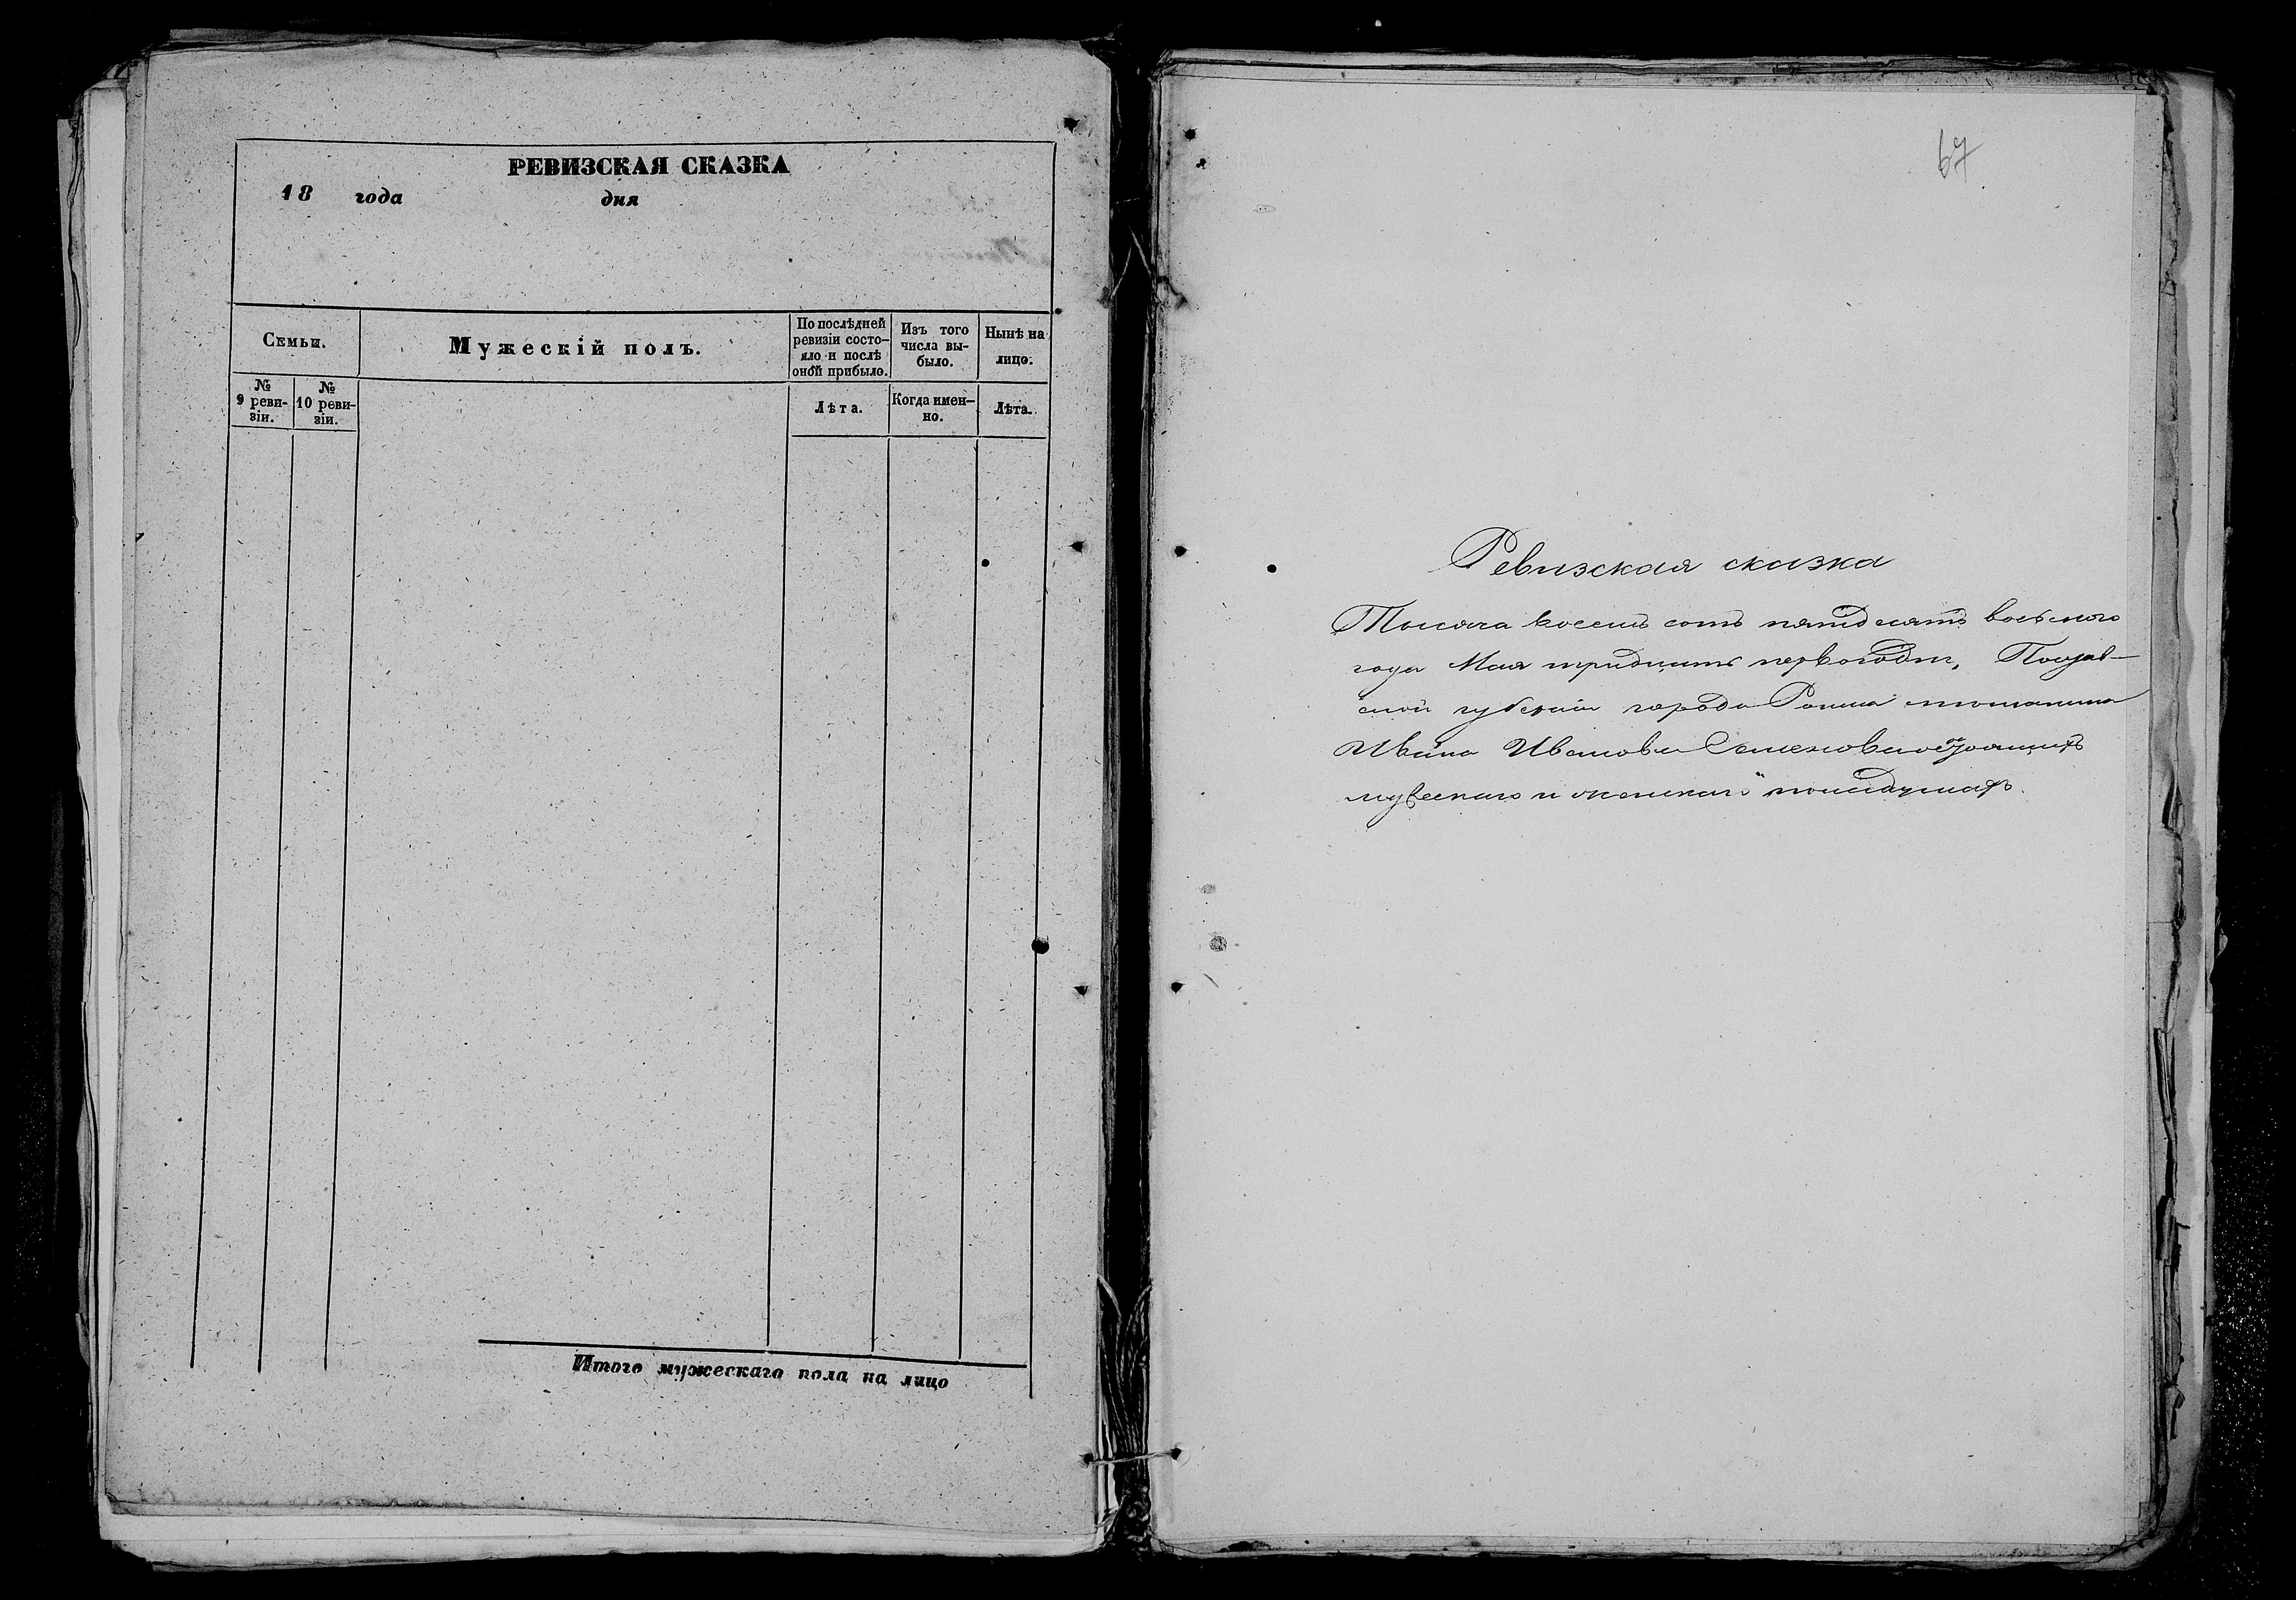 РЕВИЗСКАЯ СКАЗКА
18 года дня
Семьи.
Мужескій полъ.
По послѣдней ревизіи состо-
яло и послѣ
оной прибыло.
Изъ того
числа вы-
было.
Нынѣ на
лицо.
№
9 реви-
зіи.
№
10 реви-
зіи.
Лѣта.
Когда имен-
но.
Лѣта.
Итого мужескаго пола на лицо
67
Ревизская сказка
Тысяча восемь сотъ пятьдесятъ восьмого
года Мая тридцать перваго дня, Полтав-
ской губерніи города
Ивана Иванова
мужескаго и женскаго пола душахъ.